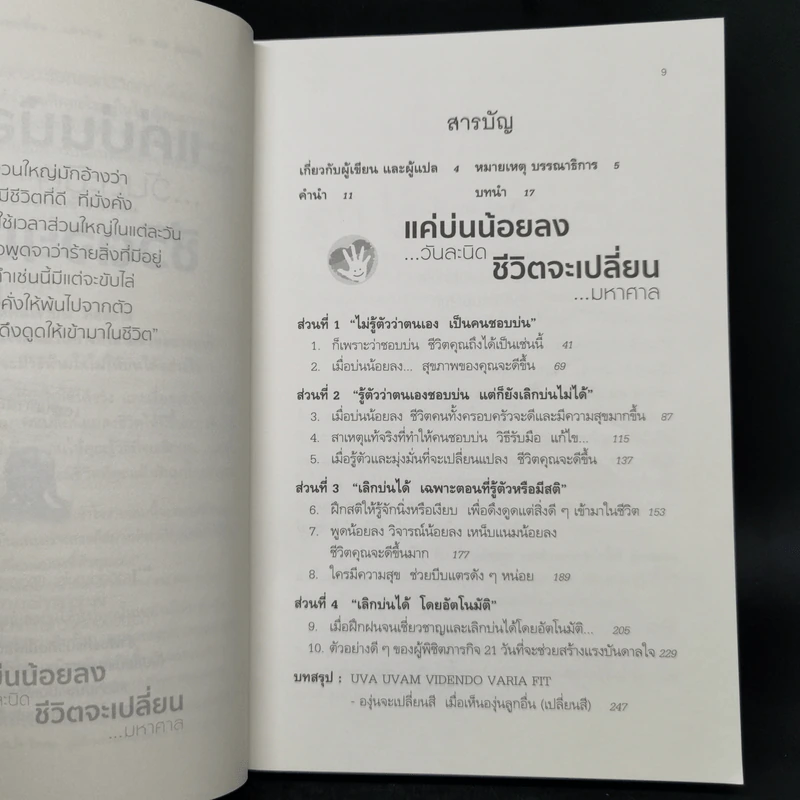 วนใหญ่มักอ้างว่า
มีชีวิตที่ดี ที่มั่งคั่ง
ใช้เวลาส่วนใหญ่ในแต่ละวัน
พูดจาว่าร้ายสิ่งที่มีอยู่
ำเช่นนี้มีแต่จะขับไล่
คั่งให้พ้นไปจากตัว
ดึงดูดให้เข้ามาในชีวิต”
บ่นน้อยลง
ะนิด ชีวิตจะเปลี่ยน
...มหาศาล
9
สารบัญ
เกี่ยวกับผู้เขียน และผู้แปล 4 หมายเหตุ บรรณาธิการ 5
คำนำ 11 บทนำ 17
แค่บ่นน้อยลง
...วันละนิด ชีวิตจะเปลี่ยน
...มหาศาล
ส่วนที่ 1 “ไม่รู้ตัวว่าตนเอง เป็นคนชอบบ่น”
1. ก็เพราะว่าชอบบ่น ชีวิตคุณถึงได้เป็นเช่นนี้ 41
2. เมื่อบ่นน้อยลง... สุขภาพของคุณจะดีขึ้น 69
ส่วนที่ 2 “รู้ตัวว่าตนเองชอบบ่น แต่ก็ยังเลิกบ่นไม่ได้”
3. เมื่อบ่นน้อยลง ชีวิตคนทั้งครอบครัวจะดีและมีความสุขมากขึ้น 87
4. สาเหตุแท้จริงที่ทำให้คนชอบบ่น วิธีรับมือ แก้ไข... 115
5. เมื่อรู้ตัวและมุ่งมั่นที่จะเปลี่ยนแปลง ชีวิตคุณจะดีขึ้น 137
ส่วนที่ 3 “เลิกบ่นได้ เฉพาะตอนที่รู้ตัวหรือมีสติ”
6. ฝึกสติให้รู้จักนิ่งหรือเงียบ เพื่อดึงดูดแต่สิ่งดี ๆ เข้ามาในชีวิต 153
7. พูดน้อยลง วิจารณ์น้อยลง เหน็บแนมน้อยลง
ชีวิตคุณจะดีขึ้นมาก 177
8. ใครมีความสุข ช่วยบีบแตรดัง ๆ หน่อย 189
ส่วนที่ 4 “เลิกบ่นได้ โดยอัตโนมัติ”
9. เมื่อฝึกฝนจนเชี่ยวชาญและเลิกบ่นได้โดยอัตโนมัติ... 205
10. ตัวอย่างดี ๆ ของผู้พิชิตภารกิจ 21 วันที่จะช่วยสร้างแรงบันดาลใจ 229
บทสรุป : UVA UVAM VIDENDO VARIA FIT
- องุ่นจะเปลี่ยนสี เมื่อเห็นองุ่นลูกอื่น (เปลี่ยนสี) 247